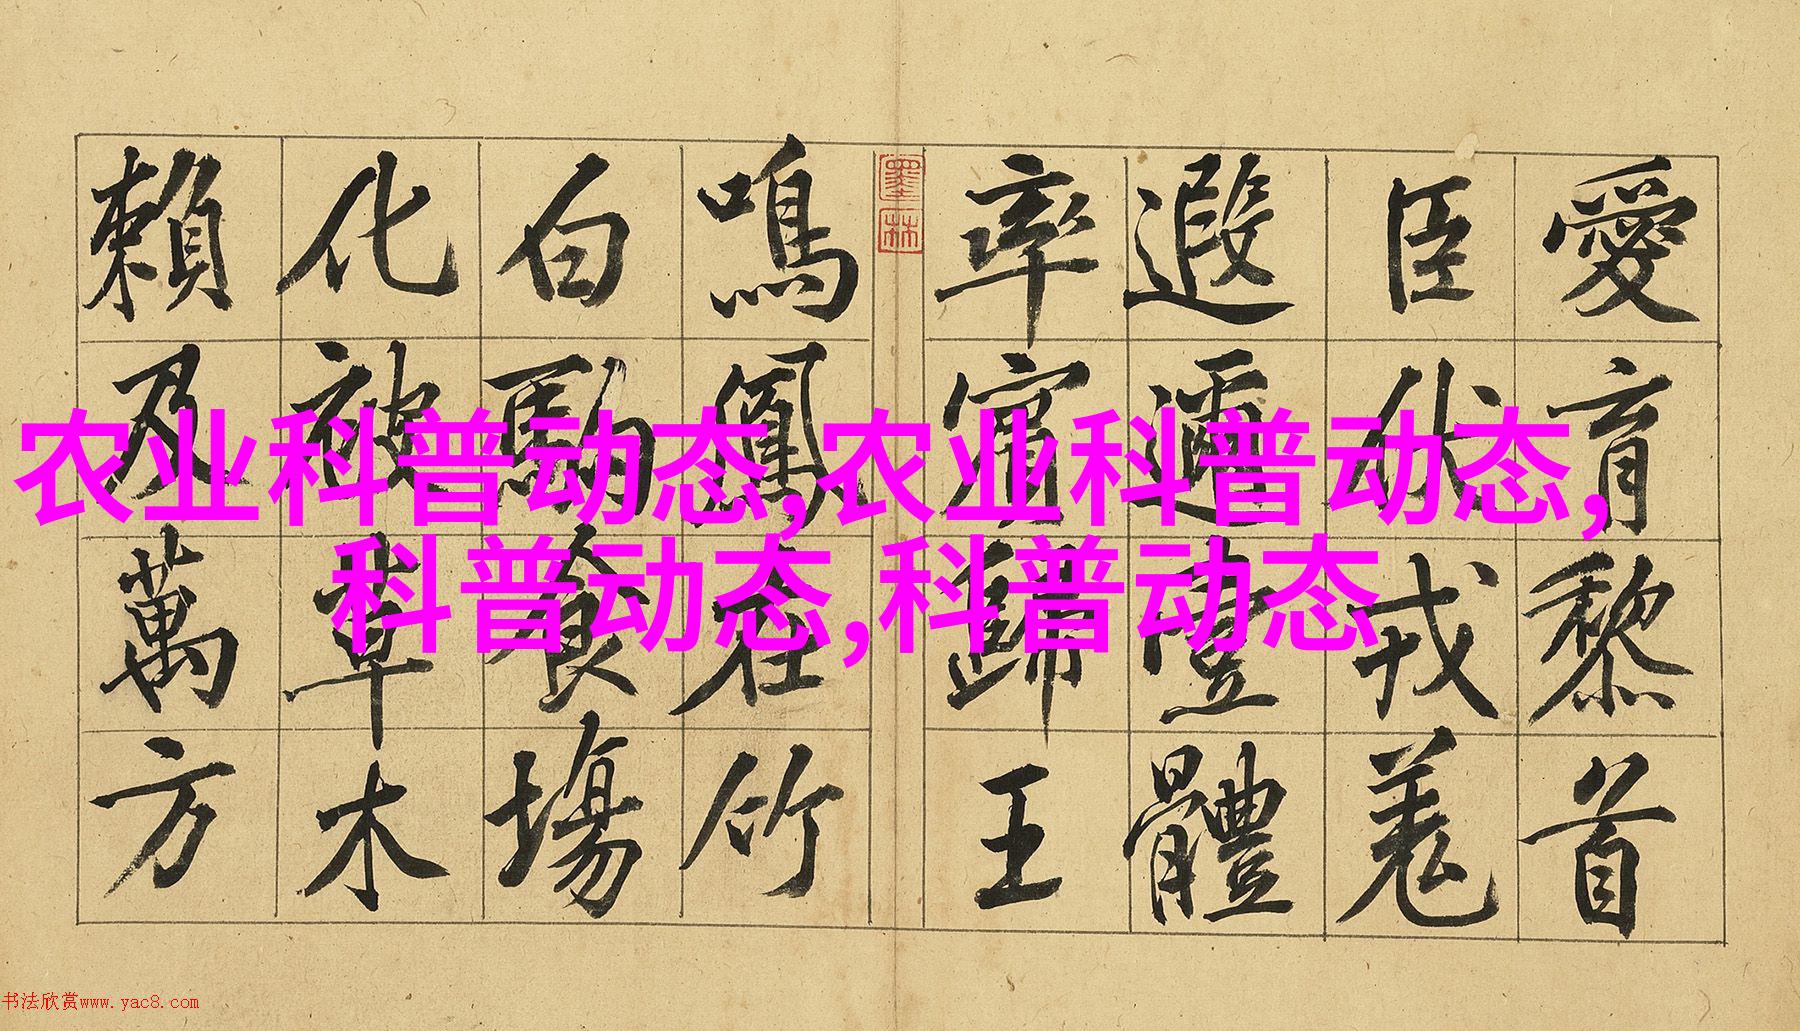 愛育黎首
臣伏戎羌
遐邇壹體
率賓歸王
墨林
鳴鳳在竹
白駒食場
化被草木
賴及萬方
农业科普动态,农业科普动态,
科普动态,科普动态
书法欣赏www.yac8.com